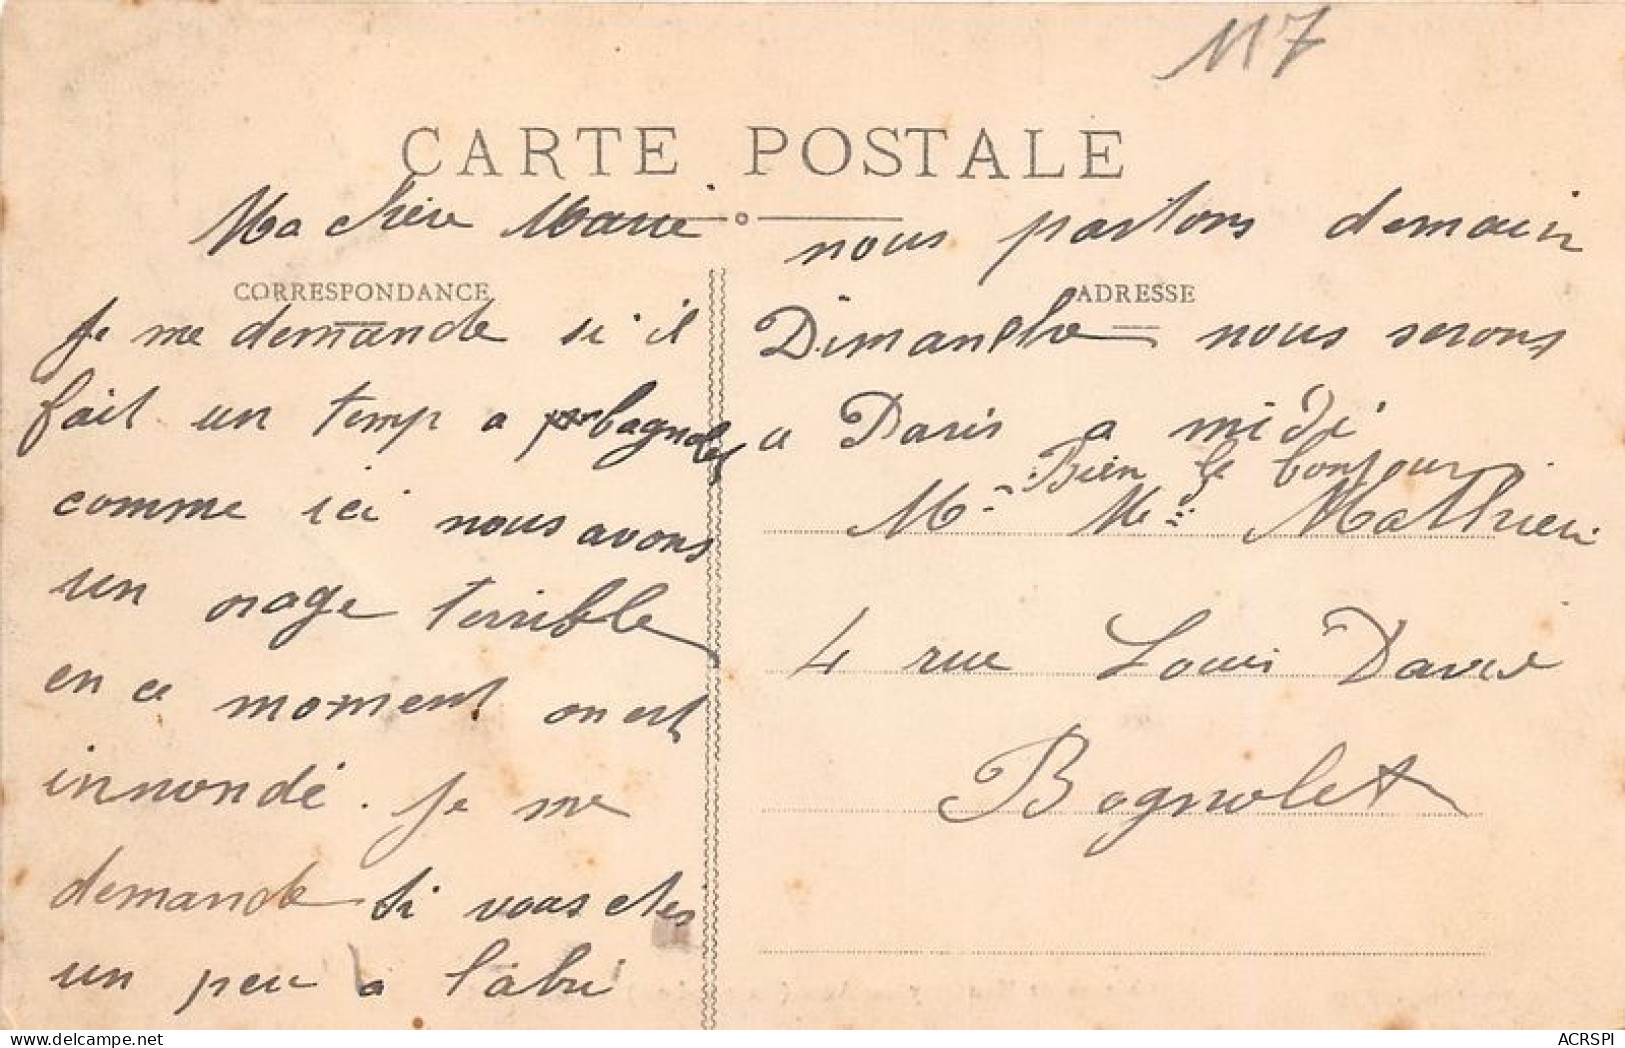 117
CARTE POSTALE
Ma chère Marie
CORRESPONDANCE
Je me demande si il
fait un temp a bagnolet
comme ici nous avons
un orage terrible
en ce moment on est
innondé. Je me
demande si vous etes
un peu a l'abri
nous partons demain
ADRESSE
Dimanche nous serons
a Paris a midi
Bien le bonjour
Mr Me Mathieu
4 rue Louis David
Bagnolet
delcampe.net
ACRSPI